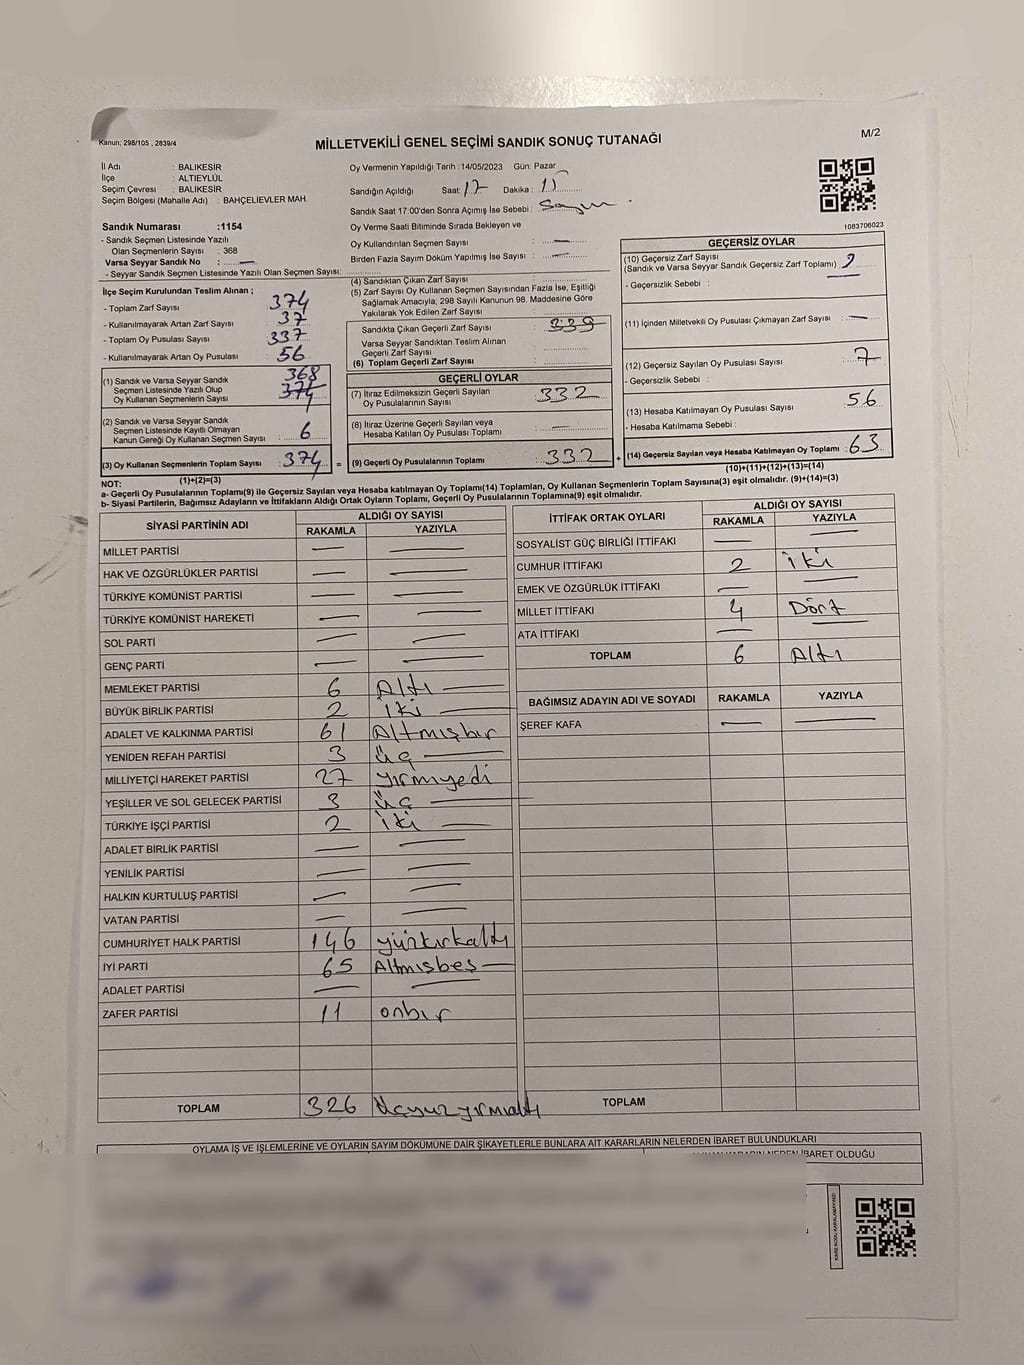 Kanun; 298/105 , 2839/4
MİLLETVEKİLİ GENEL SEÇİMİ SANDIK SONUÇ TUTANAĞI
M/2
İl Adı : BALIKESİR
İlçe : ALTIEYLÜL
Seçim Çevresi : BALIKESİR
Seçim Bölgesi (Mahalle Adı) : BAHÇELİEVLER MAH.
Oy Vermenin Yapıldığı Tarih :14/05/2023 Gün: Pazar
Sandığın Açıldığı Saat: 17 Dakika: 15
Sandık Saat 17:00'den Sonra Açımış İse Sebebi : Sayım
1083706023
Sandık Numarası :1154
- Sandık Seçmen Listesinde Yazılı
Olan Seçmenlerin Sayısı : 368
Varsa Seyyar Sandık No : —
- Seyyar Sandık Seçmen Listesinde Yazılı Olan Seçmen Sayısı:
Oy Verme Saati Bitiminde Sırada Bekleyen ve
Oy Kullandırılan Seçmen Sayısı : —
Birden Fazla Sayım Döküm Yapılmış İse Sayısı : —
İlçe Seçim Kurulundan Teslim Alınan ;
- Toplam Zarf Sayısı : 374
- Kullanılmayarak Artan Zarf Sayısı : 37
- Toplam Oy Pusulası Sayısı : 337
- Kullanılmayarak Artan Oy Pusulası : 56
(1) Sandık ve Varsa Seyyar Sandık 368
Seçmen Listesinde Yazılı Olup 374
Oy Kullanan Seçmenlerin Sayısı
(2) Sandık ve Varsa Seyyar Sandık
Seçmen Listesinde Kayıtlı Olmayan
Kanun Gereği Oy Kullanan Seçmen Sayısı : 6
(3) Oy Kullanan Seçmenlerin Toplam Sayısı : 374 =
(1)+(2)=(3)
(4) Sandıktan Çıkan Zarf Sayısı :
(5) Zarf Sayısı Oy Kullanan Seçmen Sayısından Fazla İse, Eşitliği
Sağlamak Amacıyla; 298 Sayılı Kanunun 98. Maddesine Göre
Yakılarak Yok Edilen Zarf Sayısı :
Sandıkta Çıkan Geçerli Zarf Sayısı : 339
Varsa Seyyar Sandıktan Teslim Alınan
Geçerli Zarf Sayısı :
(6) Toplam Geçerli Zarf Sayısı :
GEÇERLİ OYLAR
(7) İtiraz Edilmeksizin Geçerli Sayılan
Oy Pusulalarının Sayısı : 332
(8) İtiraz Üzerine Geçerli Sayılan veya
Hesaba Katılan Oy Pusulası Toplamı : —
(9) Geçerli Oy Pusulalarının Toplamı : 332 +
GEÇERSİZ OYLAR
(10) Geçersiz Zarf Sayısı
(Sandık ve Varsa Seyyar Sandık Geçersiz Zarf Toplamı) :
- Geçersizlik Sebebi :
(11) İçinden Milletvekili Oy Pusulası Çıkmayan Zarf Sayısı : —
(12) Geçersiz Sayılan Oy Pusulası Sayısı : 7
- Geçersizlik Sebebi :
(13) Hesaba Katılmayan Oy Pusulası Sayısı : 56
- Hesaba Katılmama Sebebi :
(14) Geçersiz Sayılan veya Hesaba Katılmayan Oy Toplamı : 63
(10)+(11)+(12)+(13)=(14)
NOT:
a- Geçerli Oy Pusulalarının Toplamı(9) ile Geçersiz Sayılan veya Hesaba katılmayan Oy Toplamı(14) Toplamları, Oy Kullanan Seçmenlerin Toplam Sayısına(3) eşit olmalıdır. (9)+(14)=(3)
b- Siyasi Partilerin, Bağımsız Adayların ve İttifakların Aldığı Ortak Oyların Toplamı, Geçerli Oy Pusulalarının Toplamına(9) eşit olmalıdır.
SİYASİ PARTİNİN ADI ALDIĞI OY SAYISI
RAKAMLA YAZIYLA
MİLLET PARTİSİ — —
HAK VE ÖZGÜRLÜKLER PARTİSİ — —
TÜRKİYE KOMÜNİST PARTİSİ — —
TÜRKİYE KOMÜNİST HAREKETİ — —
SOL PARTİ — —
GENÇ PARTİ — —
MEMLEKET PARTİSİ 6 Altı —
BÜYÜK BİRLİK PARTİSİ 2 iki —
ADALET VE KALKINMA PARTİSİ 61 Altmışbir
YENİDEN REFAH PARTİSİ 3 üç —
MİLLİYETÇİ HAREKET PARTİSİ 27 yirmiyedi
YEŞİLLER VE SOL GELECEK PARTİSİ 3 üç —
TÜRKİYE İŞÇİ PARTİSİ 2 iki —
ADALET BİRLİK PARTİSİ — —
YENİLİK PARTİSİ — —
HALKIN KURTULUŞ PARTİSİ — —
VATAN PARTİSİ — —
CUMHURİYET HALK PARTİSİ 146 yüzkırkaltı
İYİ PARTİ 65 Altmışbeş —
ADALET PARTİSİ — —
ZAFER PARTİSİ 11 onbir
TOPLAM 326 üçyüzyirmialtı
İTTİFAK ORTAK OYLARI ALDIĞI OY SAYISI
RAKAMLA YAZIYLA
SOSYALİST GÜÇ BİRLİĞİ İTTİFAKI — —
CUMHUR İTTİFAKI 2 iki
EMEK VE ÖZGÜRLÜK İTTİFAKI — —
MİLLET İTTİFAKI 4 Dört
ATA İTTİFAKI — —
TOPLAM 6 Altı
BAĞIMSIZ ADAYIN ADI VE SOYADI RAKAMLA YAZIYLA
ŞEREF KAFA — —
TOPLAM
OYLAMA İŞ VE İŞLEMLERİNE VE OYLARIN SAYIM DÖKÜMÜNE DAİR ŞİKAYETLERLE BUNLARA AİT KARARLARIN NELERDEN İBARET BULUNDUKLARI
İBARET OLDUĞU